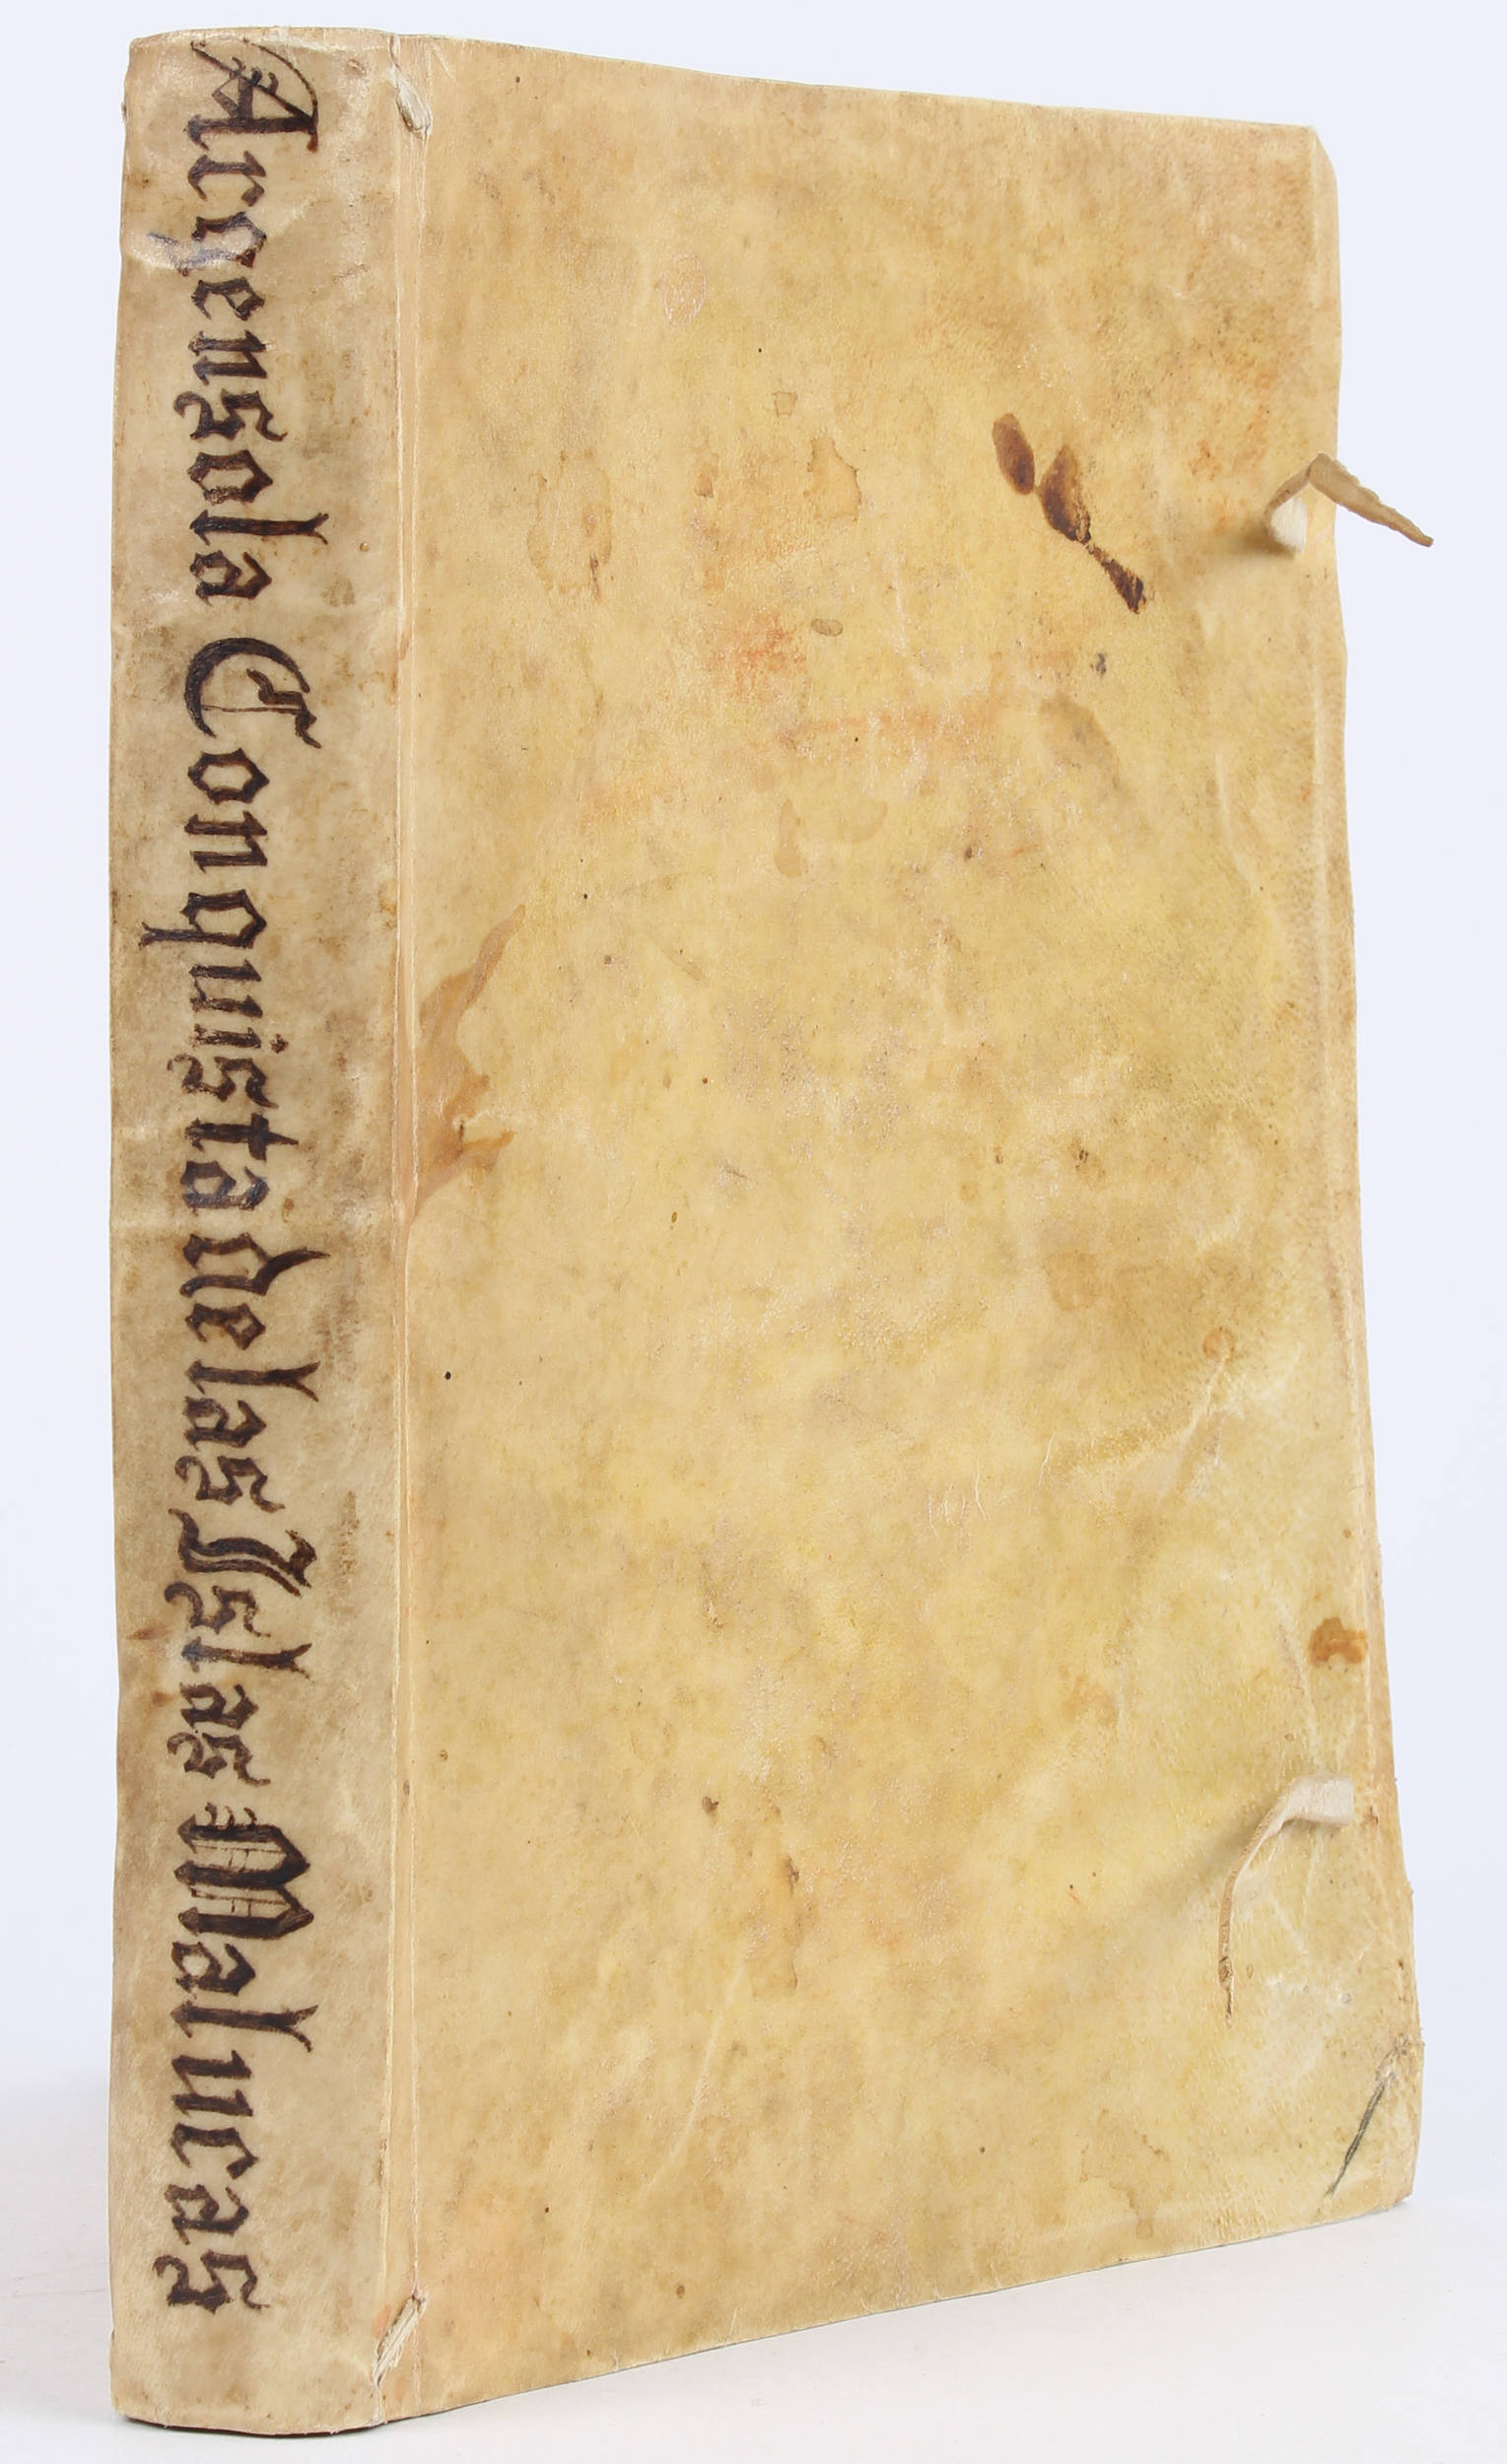 Argensola Conquista delas Islas Malucas